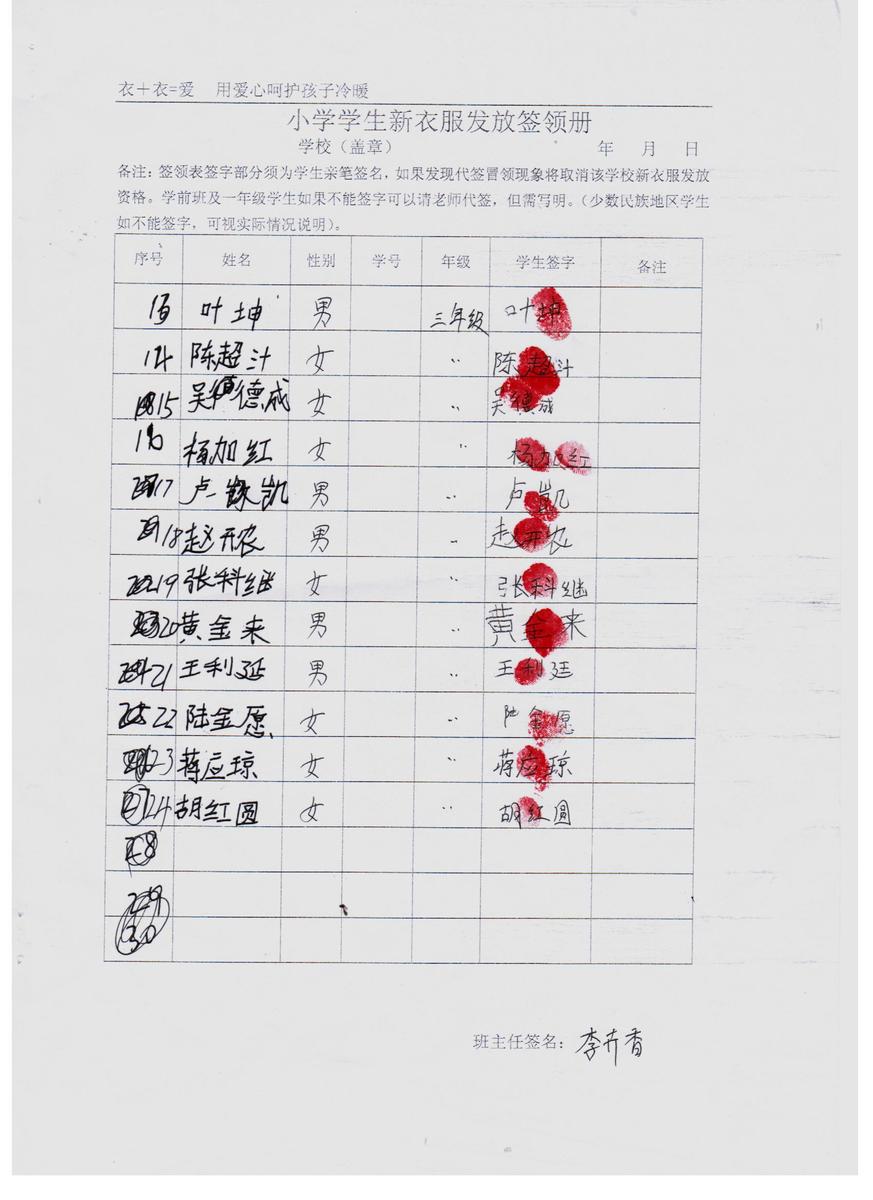 衣+衣=爱 用爱心呵护孩子冷暖
小学学生新衣服发放签领册
学校（盖章） 年 月 日
备注：签领表签字部分须为学生亲笔签名，如果发现代签冒领现象将取消该学校新衣服发放
资格。学前班及一年级学生如果不能签字可以请老师代签，但需写明。（少数民族地区学生
如不能签字，可视实际情况说明）。
序号 姓名 性别 学号 年级 学生签字 备注
13 叶坤 男 三年级 叶坤
14 陈超汁 女 〃 陈超汁
15 吴德成 女 〃 吴德成
16 杨加红 女 〃 杨加红
17 卢凯 男 〃 卢凯
18 赵开农 男 〃 赵开农
19 张科继 女 〃 张科继
20 黄金来 男 〃 黄金来
21 王利廷 男 〃 王利廷
22 陆金愿 女 〃 陆金愿
23 蒋应琼 女 〃 蒋应琼
24 胡红圆 女 〃 胡红圆
班主任签名：李卉香